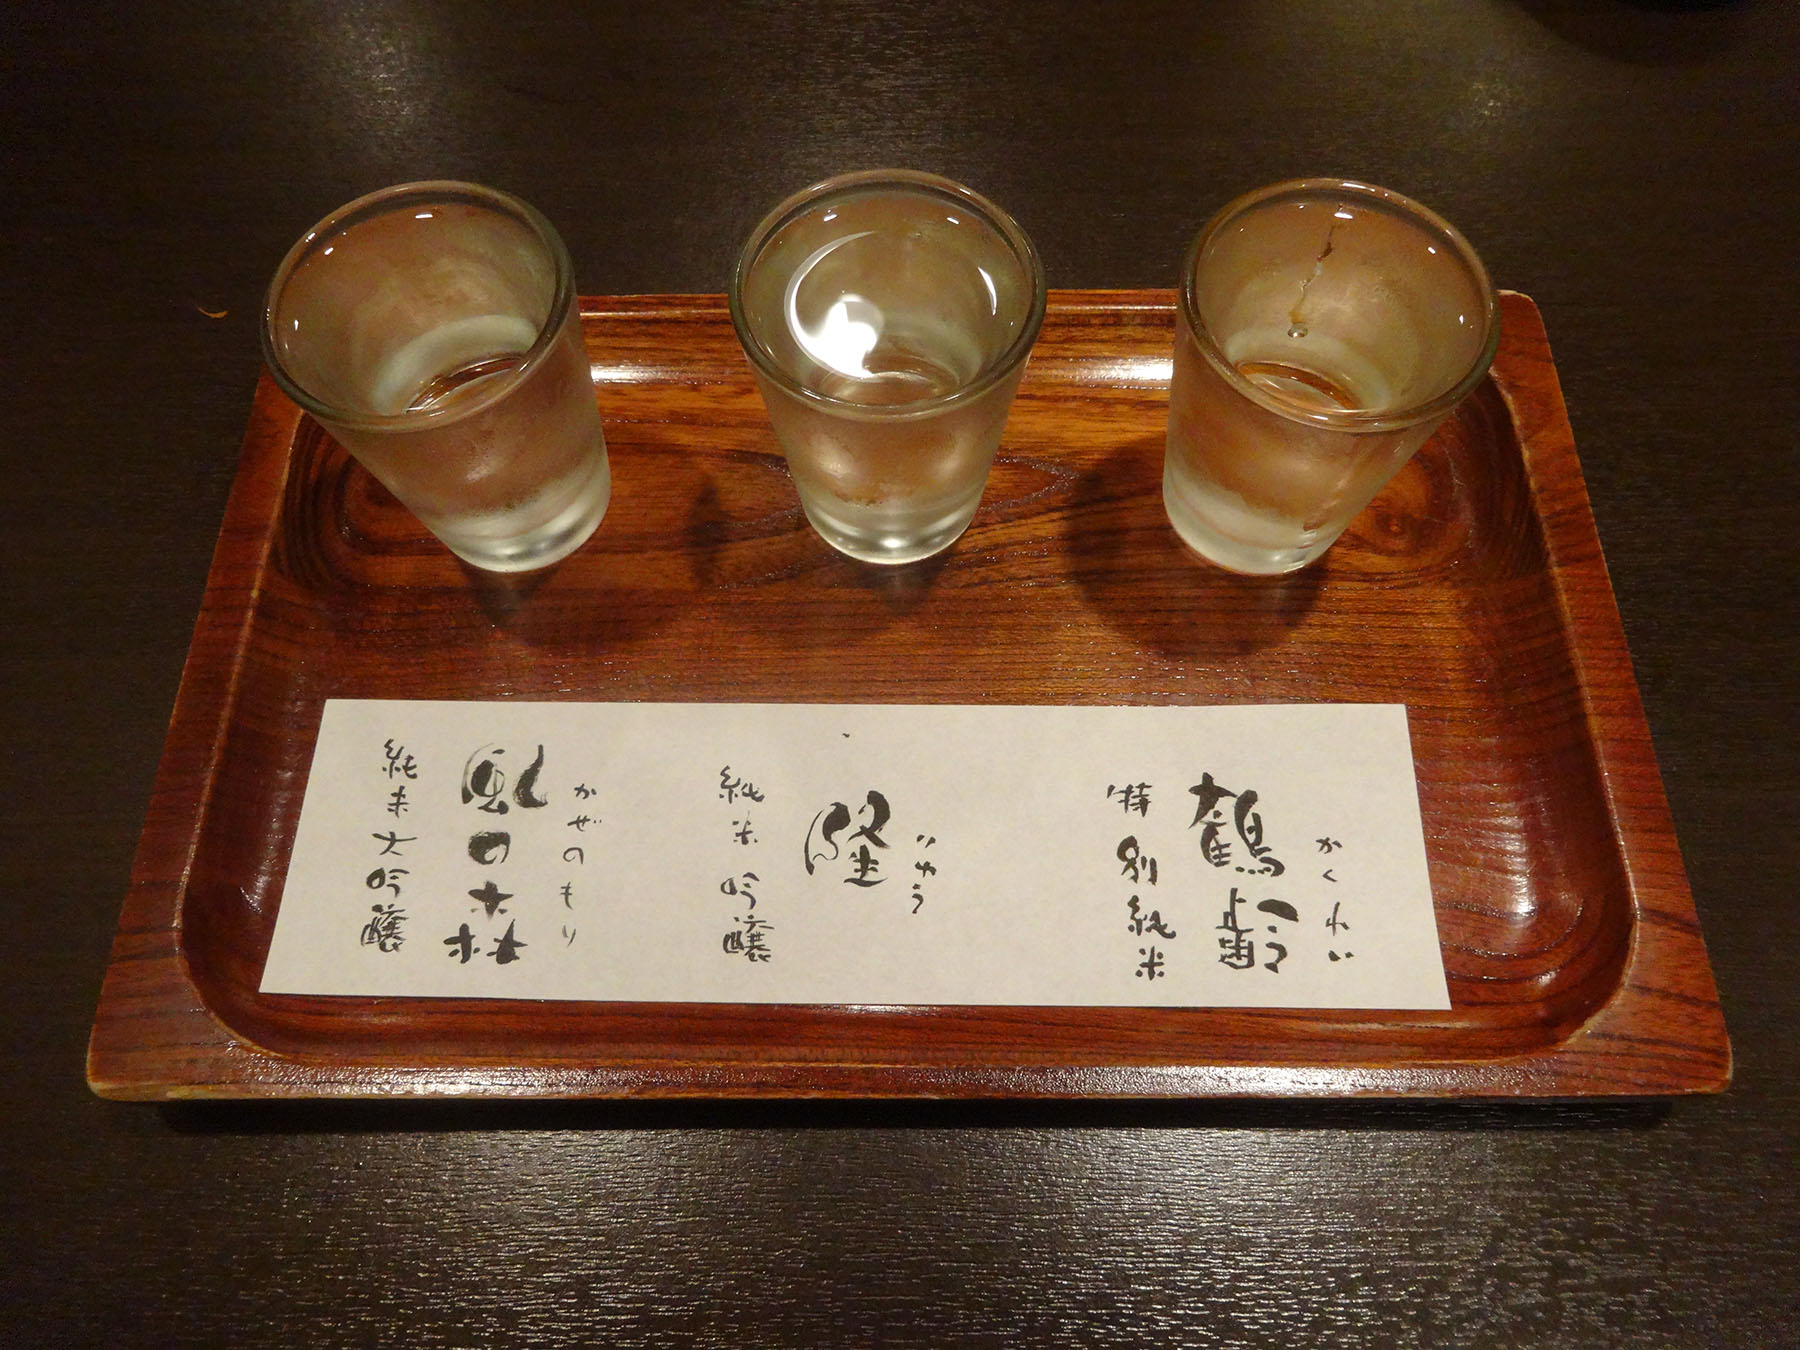 かくれい
鶴齢
特別純米
りゅう
隆
純米吟醸
かぜのもり
風の森
純米大吟醸